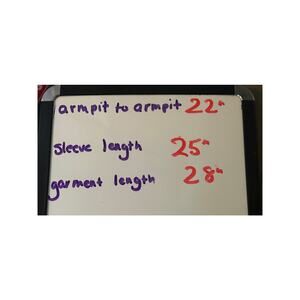 armpit to armpit 22"
sleeve length 25"
garment length 28"